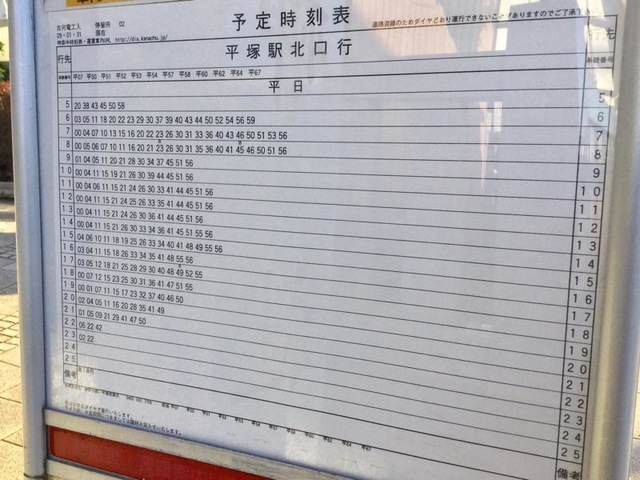 古河電工入 停留所 02
29・01・31 現在
http://dia.kanachu.jp/
予定時刻表
道路混雑のためダイヤどおり運行できないことがありますのでご了承下
行先
平塚駅北口行
行先
系統番号
平07 平50 平51 平52 平53 平54 平55 平56 平57 平58 平60 平62 平64 平67
系統番号
平日
5 20 38 43 45 50 58
5
6 03 05 11 18 20 22 23 29 30 37 39 40 43 44 50 52 54 56 59
6
7 00 04 07 10 13 15 16 20 22 23 26 30 31 33 36 40 43 46 50 51 53 56
7
8 00 05 06 07 10 11 16 20 21 23 26 30 31 35 36 40 41 45 46 50 51 56
8
9 01 04 05 11 20 21 28 30 34 37 45 51 56
9
10 00 04 11 15 19 21 26 30 39 44 45 51 56
10
11 00 04 06 11 15 21 24 26 30 33 41 44 45 51 56
11
12 00 04 11 15 21 24 25 26 33 35 41 44 45 51 56
12
13 00 04 11 15 21 26 28 30 41 44 45 51 56
13
14 00 04 11 15 21 26 30 33 41 44 51 56
14
15 04 06 10 11 18 19 25 26 33 34 40 41 48 49 55 56
15
16 03 04 11 15 18 26 33 34 35 41 48 55 56
16
17 03 05 12 18 21 25 28 29 30 40 48 49 52 55
17
18 00 07 12 15 23 25 30 31 36 41 47 51 55
18
19 00 01 07 11 15 17 23 32 37 40 46 50
19
20 02 04 05 11 16 20 28 35 41 49
20
21 01 05 09 21 29 41 47 50
21
22 06 22 42
22
23 03 22
23
24
24
25
25
備考
備考